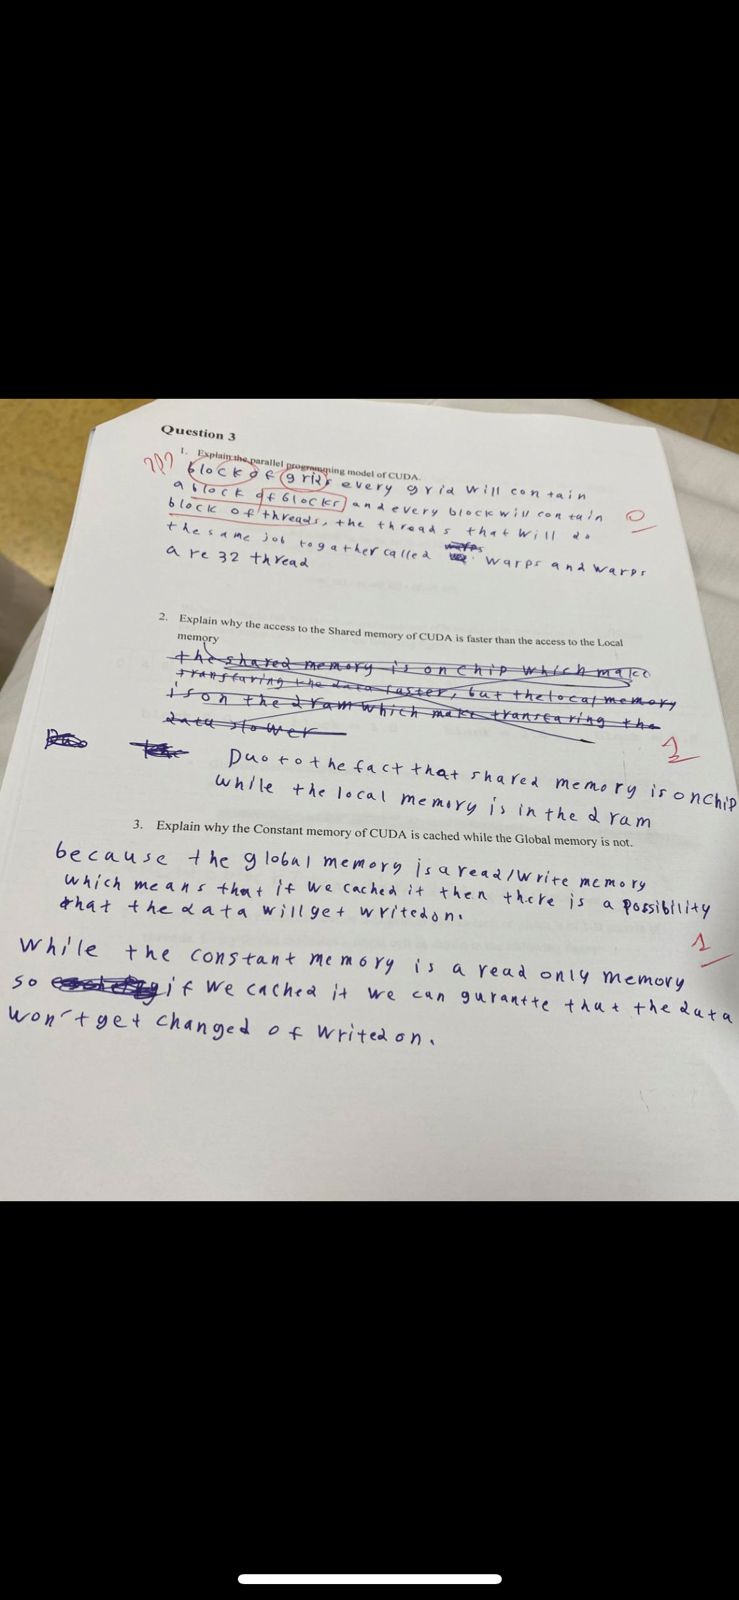 Question 3
1. Explain the parallel programming model of CUDA.
??? block of grids every grid will contain
a block of blocks and every block will contain
block of threads, the threads that will do
0
the same job togather called warps and warps
are 32 thread
2. Explain why the access to the Shared memory of CUDA is faster than the access to the Local
memory
the shared memory is on chip which make
transfaring the data faster, but the local memory
is on the dram which make transfaring the
data slower
1
Duo to the fact that shared memory is on chip
while the local memory is in the dram
3. Explain why the Constant memory of CUDA is cached while the Global memory is not.
because the global memory is a read/write memory
which means that if we cached it then there is a possibility
that the data will get writedon.
1
while the constant memory is a read only memory
so if we cached it we can gurantte that the data
won't get changed of writed on.